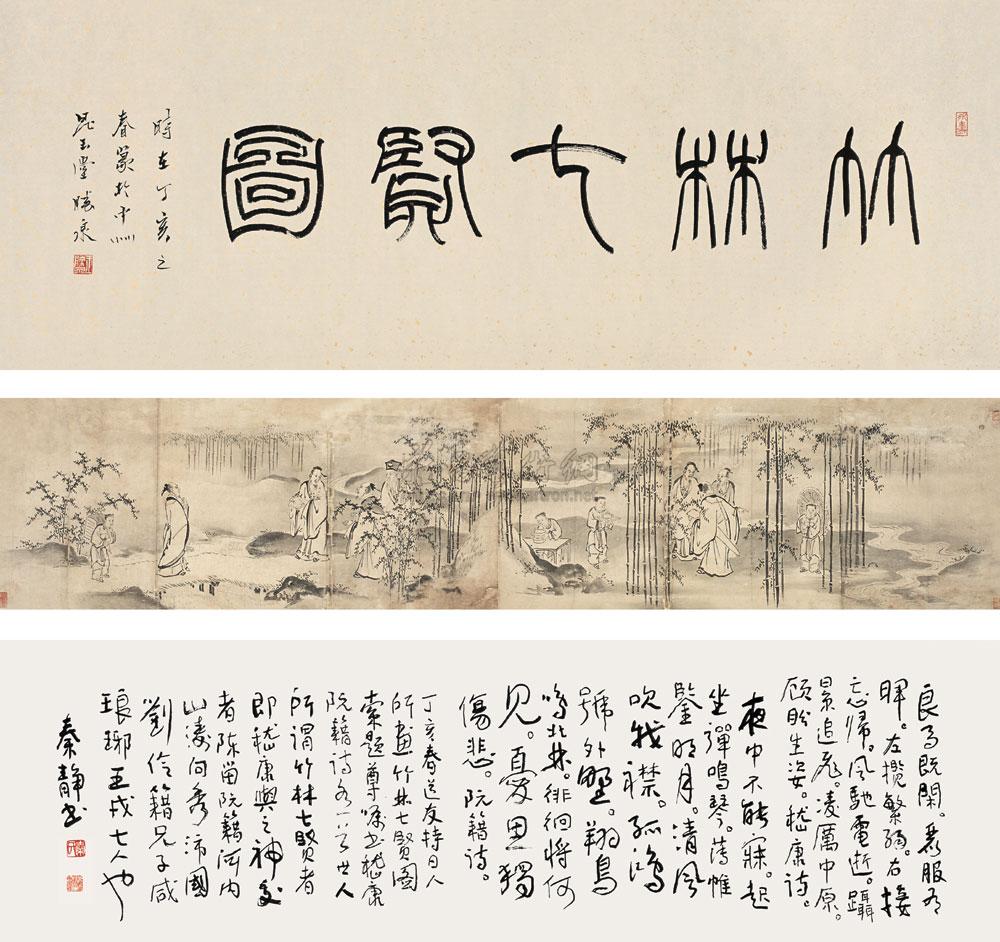 竹林七賢圖
時在丁亥之
春篆於中州
良馬既閑。麗服有
暉。左攬繁弱。右接
忘歸。風馳電逝。躡
景追飛。凌厲中原。
顧盼生姿。嵇康詩。
夜中不能寐。起
坐彈鳴琴。薄帷
鑒明月。清風
吹我襟。孤鴻
號外野。翔鳥
鳴北林。徘徊將何
見。憂思獨
傷悲。阮籍詩。
丁亥春道友持日人
所畫竹林七賢圖
索題尊囑书嵇康
阮籍诗各一首世人
所謂竹林七賢者
即嵇康與之神交
者陳留阮籍河内
山濤向秀沛國
劉伶籍兄子咸
琅琊王戎七人也
秦靜书